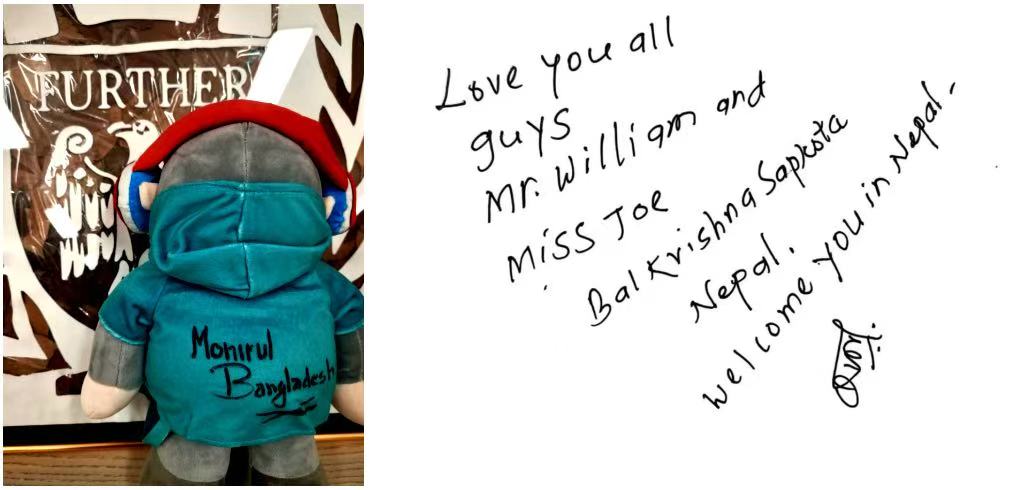 FURTHER
Monirul
Bangladesh
Love you all
guys
Mr. William and
Miss Joe
Bal Krishna Sapkota
Nepal.
welcome you in Nepal.